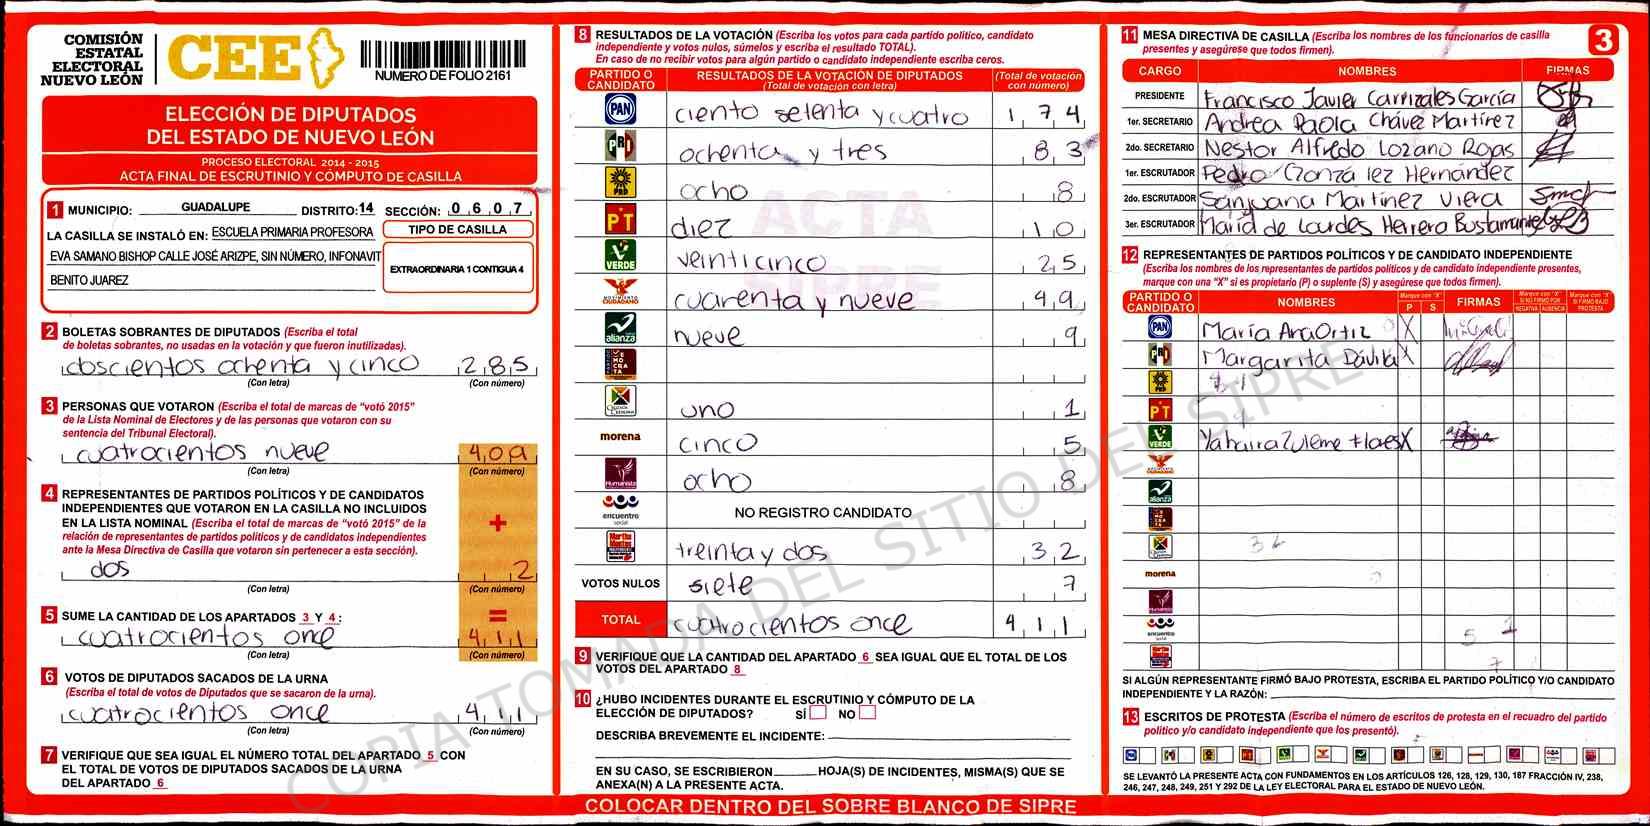 COMISIÓN
ESTATAL
ELECTORAL
NUEVO LEÓN
CEE
NUMERO DE FOLIO 2161
ELECCIÓN DE DIPUTADOS
DEL ESTADO DE NUEVO LEÓN
PROCESO ELECTORAL 2014 - 2015
ACTA FINAL DE ESCRUTINIO Y CÓMPUTO DE CASILLA
1 MUNICIPIO: GUADALUPE DISTRITO: 14 SECCIÓN: 0 6 0 7
LA CASILLA SE INSTALÓ EN: ESCUELA PRIMARIA PROFESORA
EVA SAMANO BISHOP CALLE JOSÉ ARIZPE, SIN NÚMERO, INFONAVIT
BENITO JUAREZ
TIPO DE CASILLA
EXTRAORDINARIA 1 CONTIGUA 4
2 BOLETAS SOBRANTES DE DIPUTADOS (Escriba el total
de boletas sobrantes, no usadas en la votación y que fueron inutilizadas).
doscientos ochenta y cinco 2 8 5
(Con letra) (Con número)
3 PERSONAS QUE VOTARON (Escriba el total de marcas de "votó 2015"
de la Lista Nominal de Electores y de las personas que votaron con su
sentencia del Tribunal Electoral).
cuatrocientos nueve 4 0 9
(Con letra) (Con número)
4 REPRESENTANTES DE PARTIDOS POLÍTICOS Y DE CANDIDATOS
INDEPENDIENTES QUE VOTARON EN LA CASILLA NO INCLUIDOS
EN LA LISTA NOMINAL (Escriba el total de marcas de "votó 2015" de la
relación de representantes de partidos políticos y de candidatos independientes
ante la Mesa Directiva de Casilla que votaron sin pertenecer a esta sección).
+
dos 2
(Con letra) (Con número)
5 SUME LA CANTIDAD DE LOS APARTADOS 3 Y 4: =
cuatrocientos once 4 1 1
(Con letra) (Con número)
6 VOTOS DE DIPUTADOS SACADOS DE LA URNA
(Escriba el total de votos de Diputados que se sacaron de la urna).
cuatrocientos once 4 1 1
(Con letra) (Con número)
7 VERIFIQUE QUE SEA IGUAL EL NÚMERO TOTAL DEL APARTADO 5 CON
EL TOTAL DE VOTOS DE DIPUTADOS SACADOS DE LA URNA
DEL APARTADO 6
8 RESULTADOS DE LA VOTACIÓN (Escriba los votos para cada partido político, candidato
independiente y votos nulos, súmelos y escriba el resultado TOTAL).
En caso de no recibir votos para algún partido o candidato independiente escriba ceros.
PARTIDO O CANDIDATO RESULTADOS DE LA VOTACIÓN DE DIPUTADOS (Total de votación con letra) (Total de votación con número)
PAN ciento setenta y cuatro 1 7 4
PRI ochenta y tres 8 3
PRD ocho 8
PT diez 1 0
VERDE veinticinco 2 5
MOVIMIENTO CIUDADANO cuarenta y nueve 4 9
alianza nueve 9
DEMOCRATA
CRUZADA CIUDADANA uno 1
morena cinco 5
Humanista ocho 8
encuentro social NO REGISTRO CANDIDATO
Martha treinta y dos 3 2
VOTOS NULOS siete 7
TOTAL cuatrocientos once 4 1 1
ACTA
SIPRE
9 VERIFIQUE QUE LA CANTIDAD DEL APARTADO 6 SEA IGUAL QUE EL TOTAL DE LOS
VOTOS DEL APARTADO 8
10 ¿HUBO INCIDENTES DURANTE EL ESCRUTINIO Y CÓMPUTO DE LA
ELECCIÓN DE DIPUTADOS? SÍ NO
DESCRIBA BREVEMENTE EL INCIDENTE:
EN SU CASO, SE ESCRIBIERON HOJA(S) DE INCIDENTES, MISMA(S) QUE SE
ANEXA(N) A LA PRESENTE ACTA.
COLOCAR DENTRO DEL SOBRE BLANCO DE SIPRE
11 MESA DIRECTIVA DE CASILLA (Escriba los nombres de los funcionarios de casilla
presentes y asegúrese que todos firmen).
3
CARGO NOMBRES FIRMAS
PRESIDENTE Francisco Javier Carrizales García
1er. SECRETARIO Andrea Paola Chávez Martínez
2do. SECRETARIO Nestor Alfredo Lozano Rojas
1er. ESCRUTADOR Pedro González Hernández
2do. ESCRUTADOR Sanjuana Martínez Viera
3er. ESCRUTADOR María de Lourdes Herrera Bustamante
12 REPRESENTANTES DE PARTIDOS POLÍTICOS Y DE CANDIDATO INDEPENDIENTE
(Escriba los nombres de los representantes de partidos políticos y de candidato independiente presentes,
marque con una "X" si es propietario (P) o suplente (S) y asegúrese que todos firmen).
PARTIDO O CANDIDATO NOMBRES Marque con "X" P S FIRMAS Marque con "X" SI NO FIRMÓ POR NEGATIVA AUSENCIA Marque con "X" SI FIRMÓ BAJO PROTESTA
PAN María Ana Ortiz X
PRI Margarita Dávila X
PRD
PT
VERDE X
alianza
morena
encuentro social
SI ALGÚN REPRESENTANTE FIRMÓ BAJO PROTESTA, ESCRIBA EL PARTIDO POLÍTICO Y/O CANDIDATO
INDEPENDIENTE Y LA RAZÓN:
13 ESCRITOS DE PROTESTA (Escriba el número de escritos de protesta en el recuadro del partido
político y/o candidato independiente que los presentó).
SE LEVANTÓ LA PRESENTE ACTA CON FUNDAMENTOS EN LOS ARTÍCULOS 126, 128, 129, 130, 187 FRACCIÓN IV, 238,
246, 247, 248, 249, 251 Y 292 DE LA LEY ELECTORAL PARA EL ESTADO DE NUEVO LEÓN.
COPIA TOMADA DEL SITIO DEL SIPRE